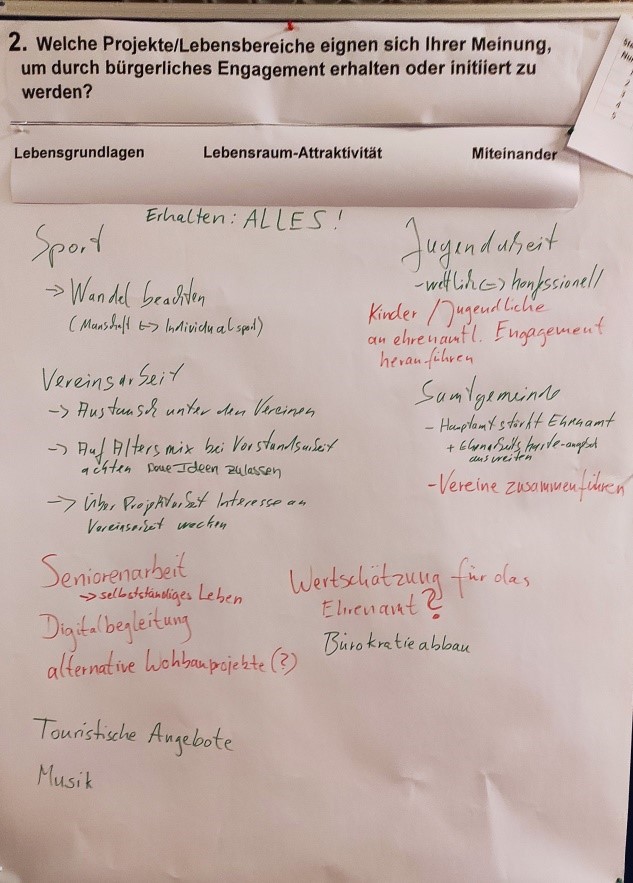 2. Welche Projekte/Lebensbereiche eignen sich Ihrer Meinung,
um durch bürgerliches Engagement erhalten oder initiiert zu
werden?
Lebensgrundlagen Lebensraum-Attraktivität Miteinander
Erhalten: ALLES!
Sport
-> Wandel beachten
(Manschaft <-> Individualsport)
Vereinsarbeit
-> Austausch unter den Vereinen
-> Auf Altersmix bei Vorstandsarbeit
achten neue Ideen zulassen
-> Über Projektarbeit Interesse an
Vereinsarbeit wecken
Seniorenarbeit
-> selbstständiges Leben
Digitalbegleitung
alternative Wohbauprojekte (?)
Touristische Angebote
Musik
Jugendarbeit
- weltlich <=> konfessionell
Kinder / Jugendliche
an ehrenamtl. Engagement
heranführen
Samtgemeinde
- Hauptamt stärkt Ehrenamt
+ ausweiten
- Vereine zusammenführen
Wertschätzung für das
Ehrenamt?
Bürokratieabbau